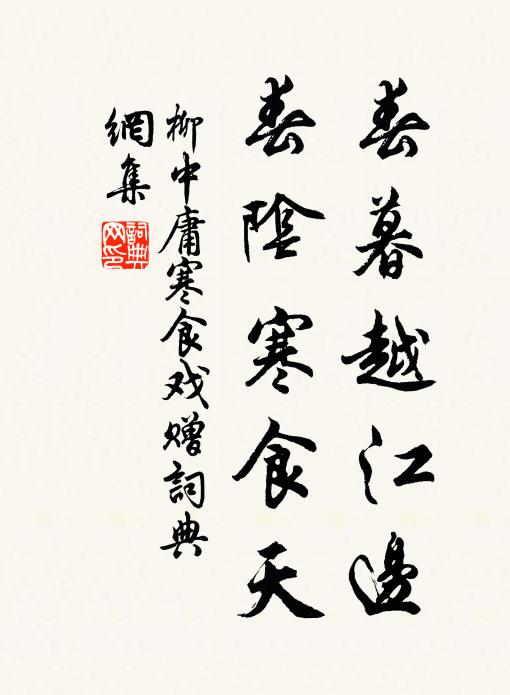 春暮越江邊
春陰寒食天
柳中庸寒食戏贈詞典
網集
詞典网印